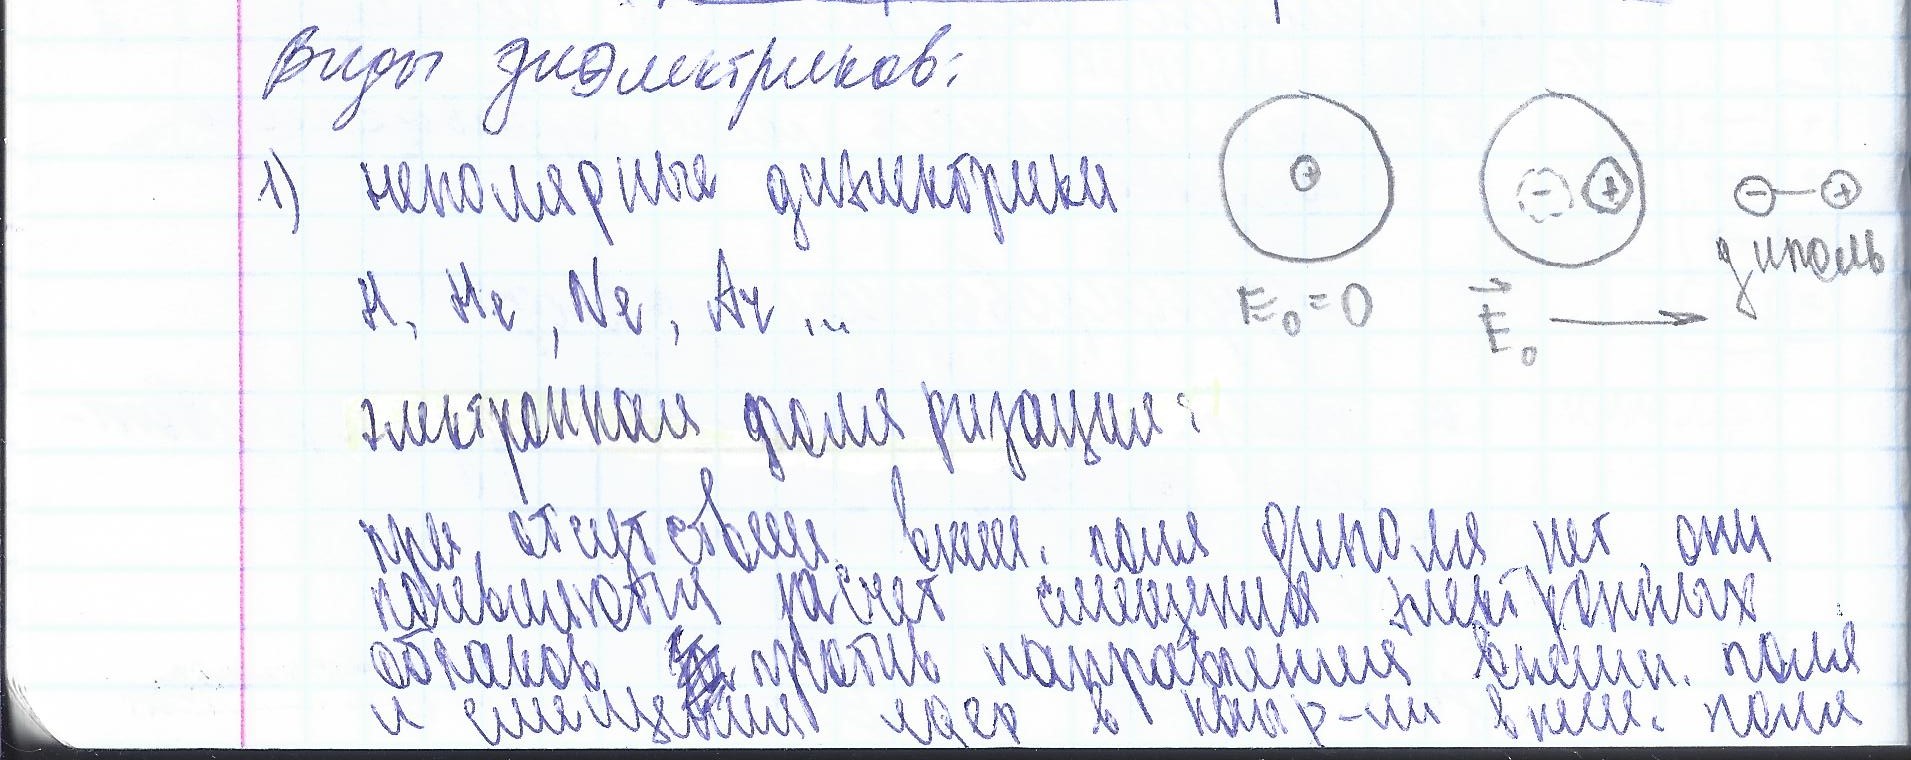 Виды диэлектриков:
1) неполярные диэлектрики
H, He, Ne, Ar ...
+
- +
- +
диполь
E₀ = 0
E₀
электронная поляризация:
при отсутствии внеш. поля диполя нет они
появляются засчет смещения электронных
облаков против направления внешн. поля
и смещения ядер в напр-ии внеш. поля